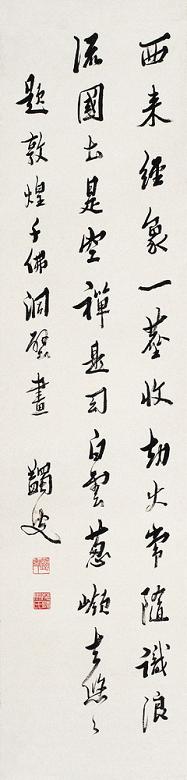 西来經象一龕收劫火常隨識浪
流國土是空禪是幻白雲蔥嶺去悠々
題敦煌千佛洞壁畫 蠲叟